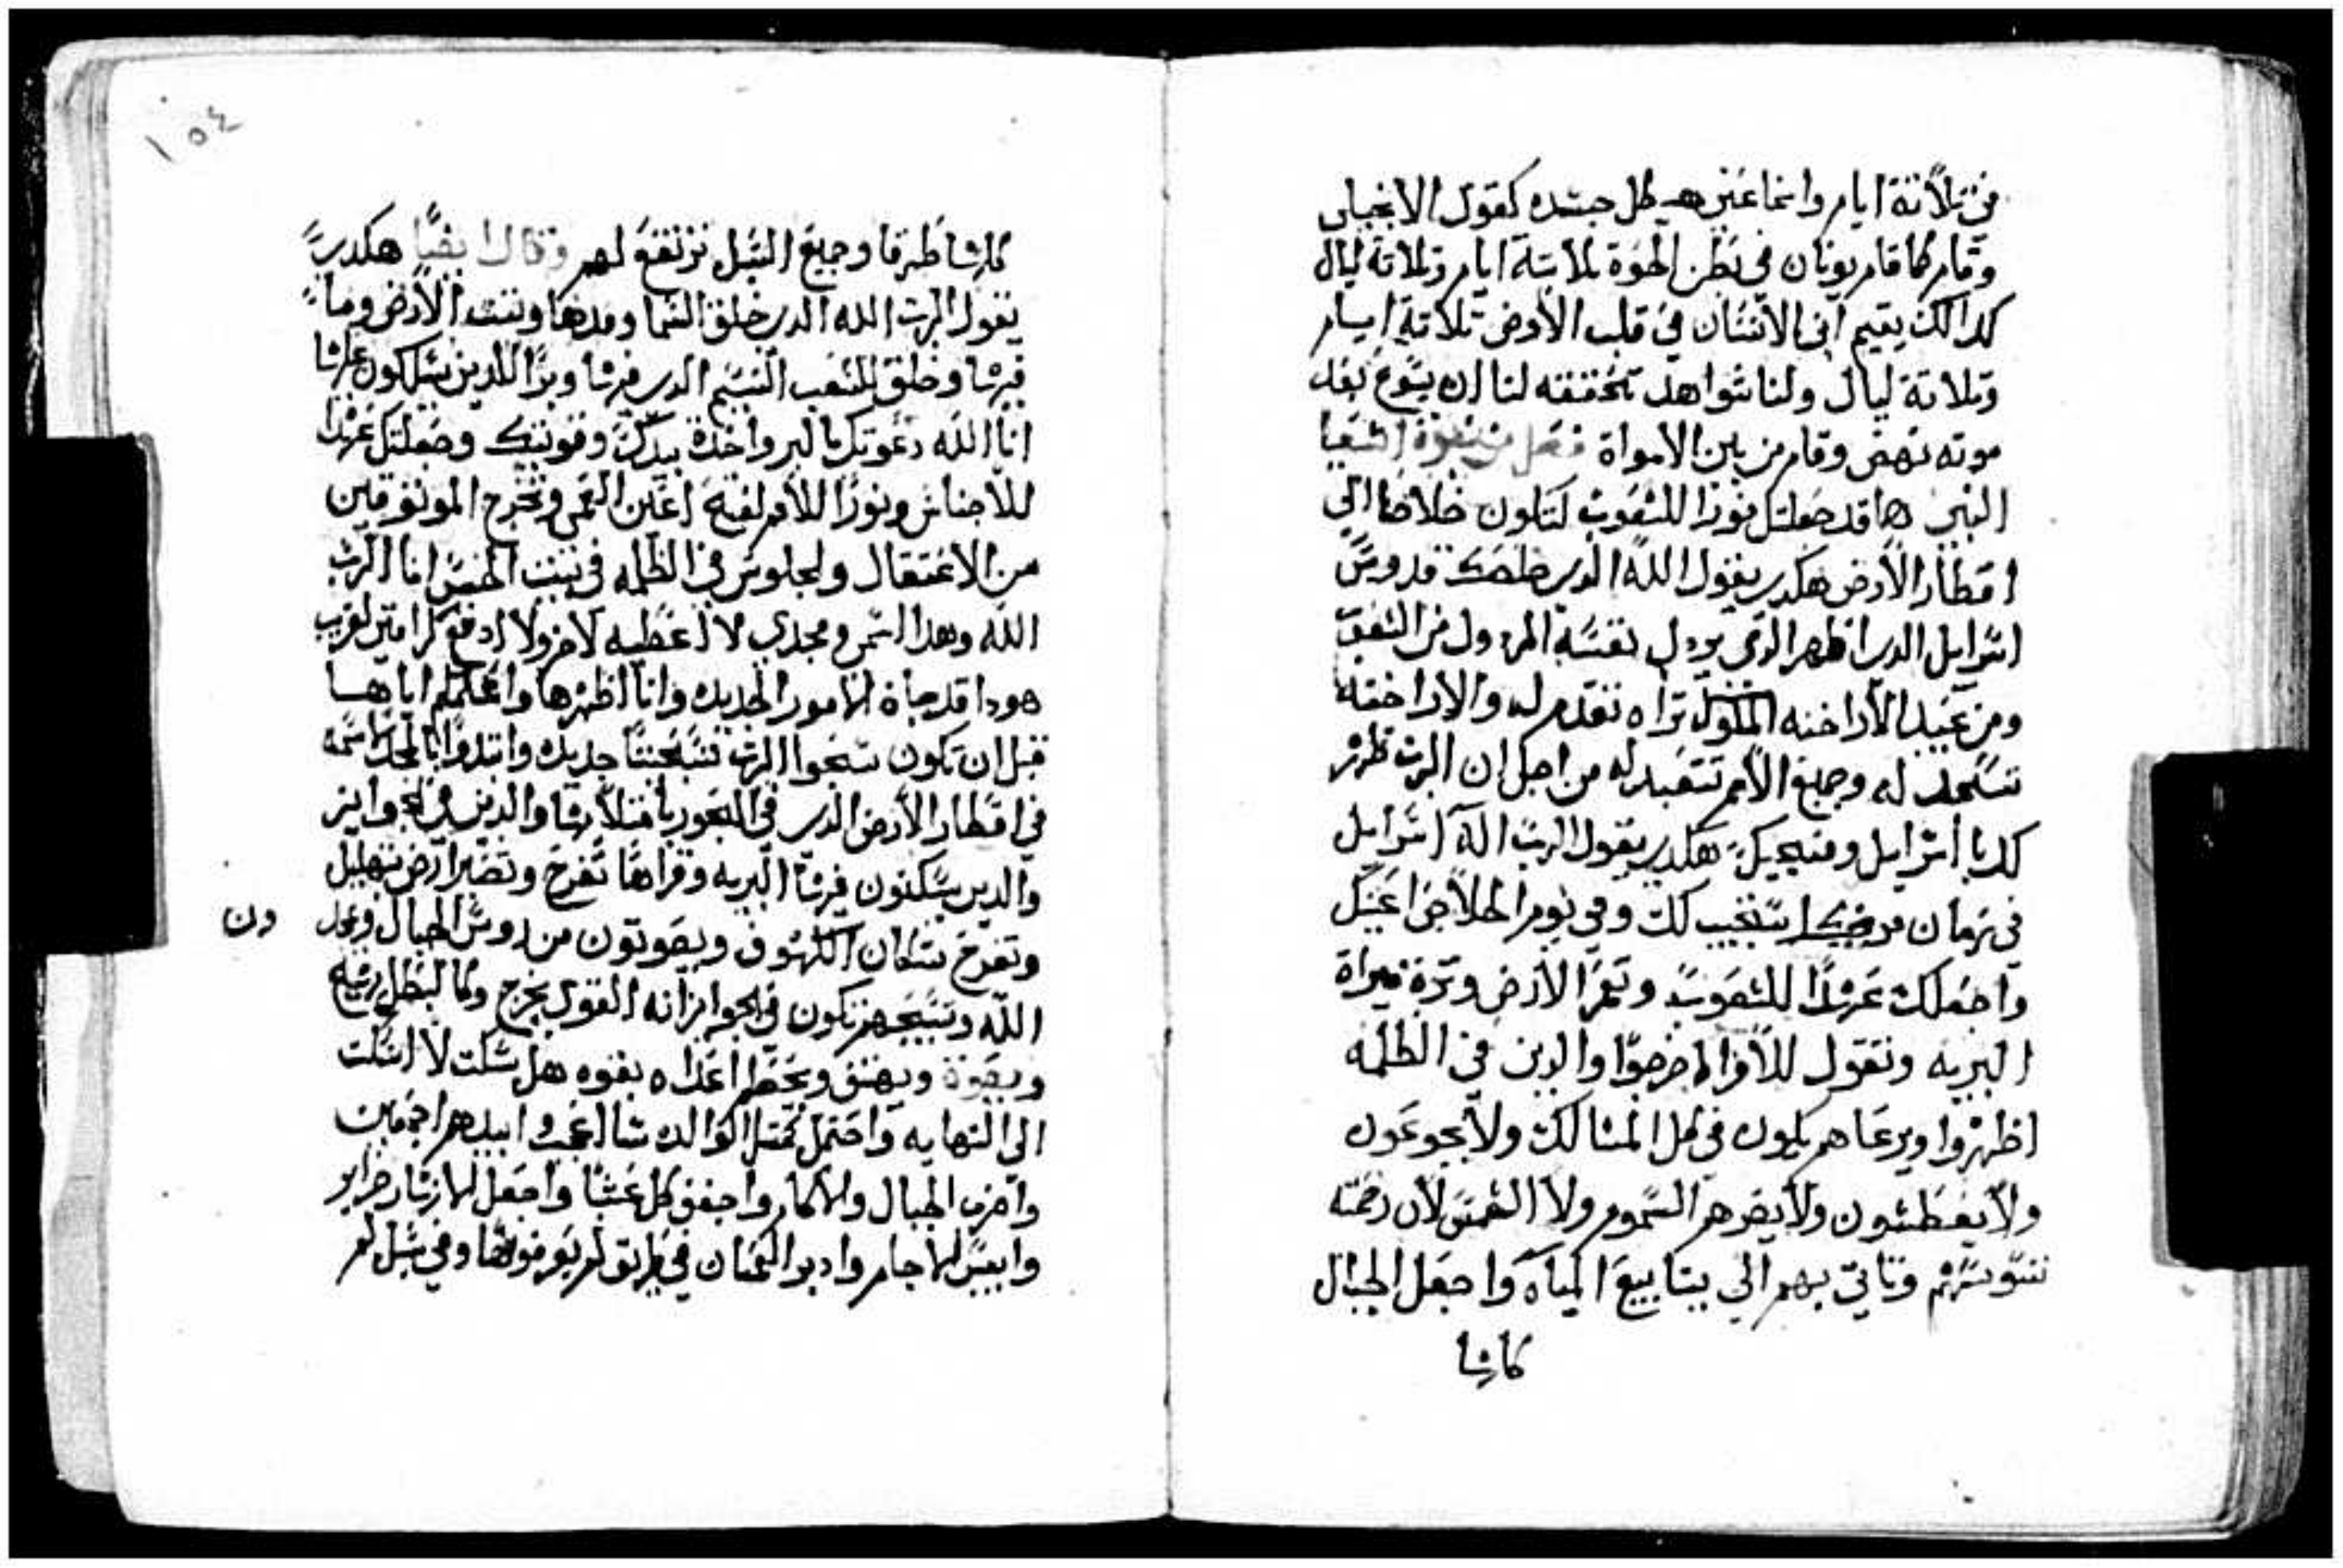 في تلاتة ايام وانما عني هيكل جسده كقول الانجيلي
وقام كما قام يونان في بطن الحوة تلاتة ايام وتلاتة ليال
كدالك يقيم ابن الانسان في قلب الارض تلاتة ايام
وتلاتة ليال ولنا شواهد تحققه لنا ان يسوع بعد
موته نهض وقام من بين الامواة فصل من نبوة اشعيا
النبي ها قد جعلتك نورا للشعوب لتكون خلاصا الي
اقطار الارض هكدي يقول الله الدي خلصك قدوس
اسرايل الدي اظهر الدي يردل نفسه المردول من الشعوب
ومن عبيد الاراخنه الملوك تراه تقدم له والاراخنه
تسجد له وجميع الامم تتعبد له من اجل ان الرب
اسرايل هكدي يقول الرب اله اسرايل
في زمان استجيب لك وفي يوم الخلاص اعينك
واجعلك عهدا للشعوب وتعمر الارض وترة ميراة
البريه وتقول للاسرا اخرجوا والدين في الظلمه
اظهروا ويرعاهم يكون في كل المسالك ولا يجوعون
ولا يعطشون ولا يضرهم السموم ولا الشمس لان رحمته
وتاتي بهم الي ينابيع المياه واجعل الجبال
كلها
كلها طرقا وجميع السبل ترتفع لهم وقال ايضا هكدي
يقول الرب الله الدي خلق السما ومدها وتبت الارض وما
فيها وخلق للشعب النسيم الدي فيها وبرا للدين يسلكون عليها
انا الله دعوتك بالبر واخدة بيدك وقويتك وجعلتك عهدا
للاجناس ونورا للامم لفتح اعين العمي وتخرج الموتوقين
من الاعتقال والجلوس في الظلمه في بيت الحبس انا الرب
الله وهدا اسمي ومجدي لا اعطيه لاخر ولا ادفع
هودا قد جاة الامور الجديده وانا اظهرها واعلمكم اياها
قبل ان تكون سبحوا الرب تسبيحتا جديده
في اقطار الارض الدي في البحور بامتلايها والدين في الجزاير
والدين يسكنون فيها البريه وقراها تفرح وتصير ارض تهليل
وتفرح سكان الكهوف ويصوتون من روس الجبال ويمجد
ون
الله وتسبحهم تكون في الجزاير اله القوي يخرج وكالبطل
ويصوة ويهتف ويحطم اعداه بقوه هل سكت لا اسكت
الي النهايه واحتمل كمتل الوالده اعجب ابيدهم اجمعين
واخرب الجبال والاكام واجفف كل عشبا واجعل انهارها جزاير
وايبس الاجام وادبر العميان في طريق لم يعرفونها وفي سبل لم
١٥٤